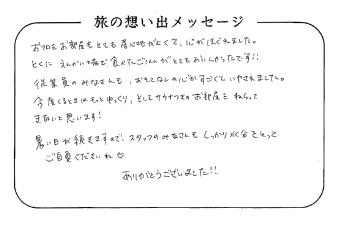 旅の想い出メッセージ
お風呂もお部屋もとても居心地がよくて、心がほぐれました。
とくに えんがいで食べたごはんがとてもおいしかったです!!
従業員のみなさんも、おもてなしの心がすごくていやされました。
今度くるときはもっとゆっくり、としてサウナつきのお部屋をねらって
きたいと思います!
暑い日が続きますので、スタッフのみなさんも しっかり水分をとって
ご自愛くださいね♡
ありがとうございました!!